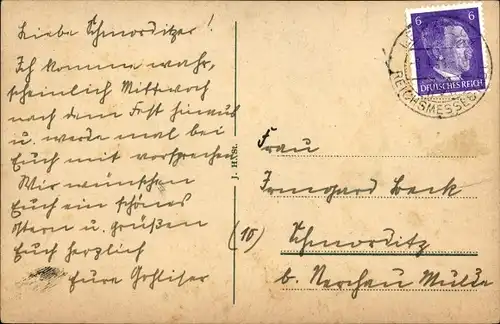 Liebe Schmorditzer!
Ich komme wahr-
scheinlich Mittwoch
nach dem Fest hinaus
u. werde mal bei
Euch mit vorsprechen
Wir wünschen
Euch ein schönes
Ostern u. grüßen
Euch herzlich
Eure Gohliser
J. H.
6 6
DEUTSCHES REICH
REICHSMESSE
Frau
Irmgard Beck
(10) Schmorditz
b. Nerchau Mulde